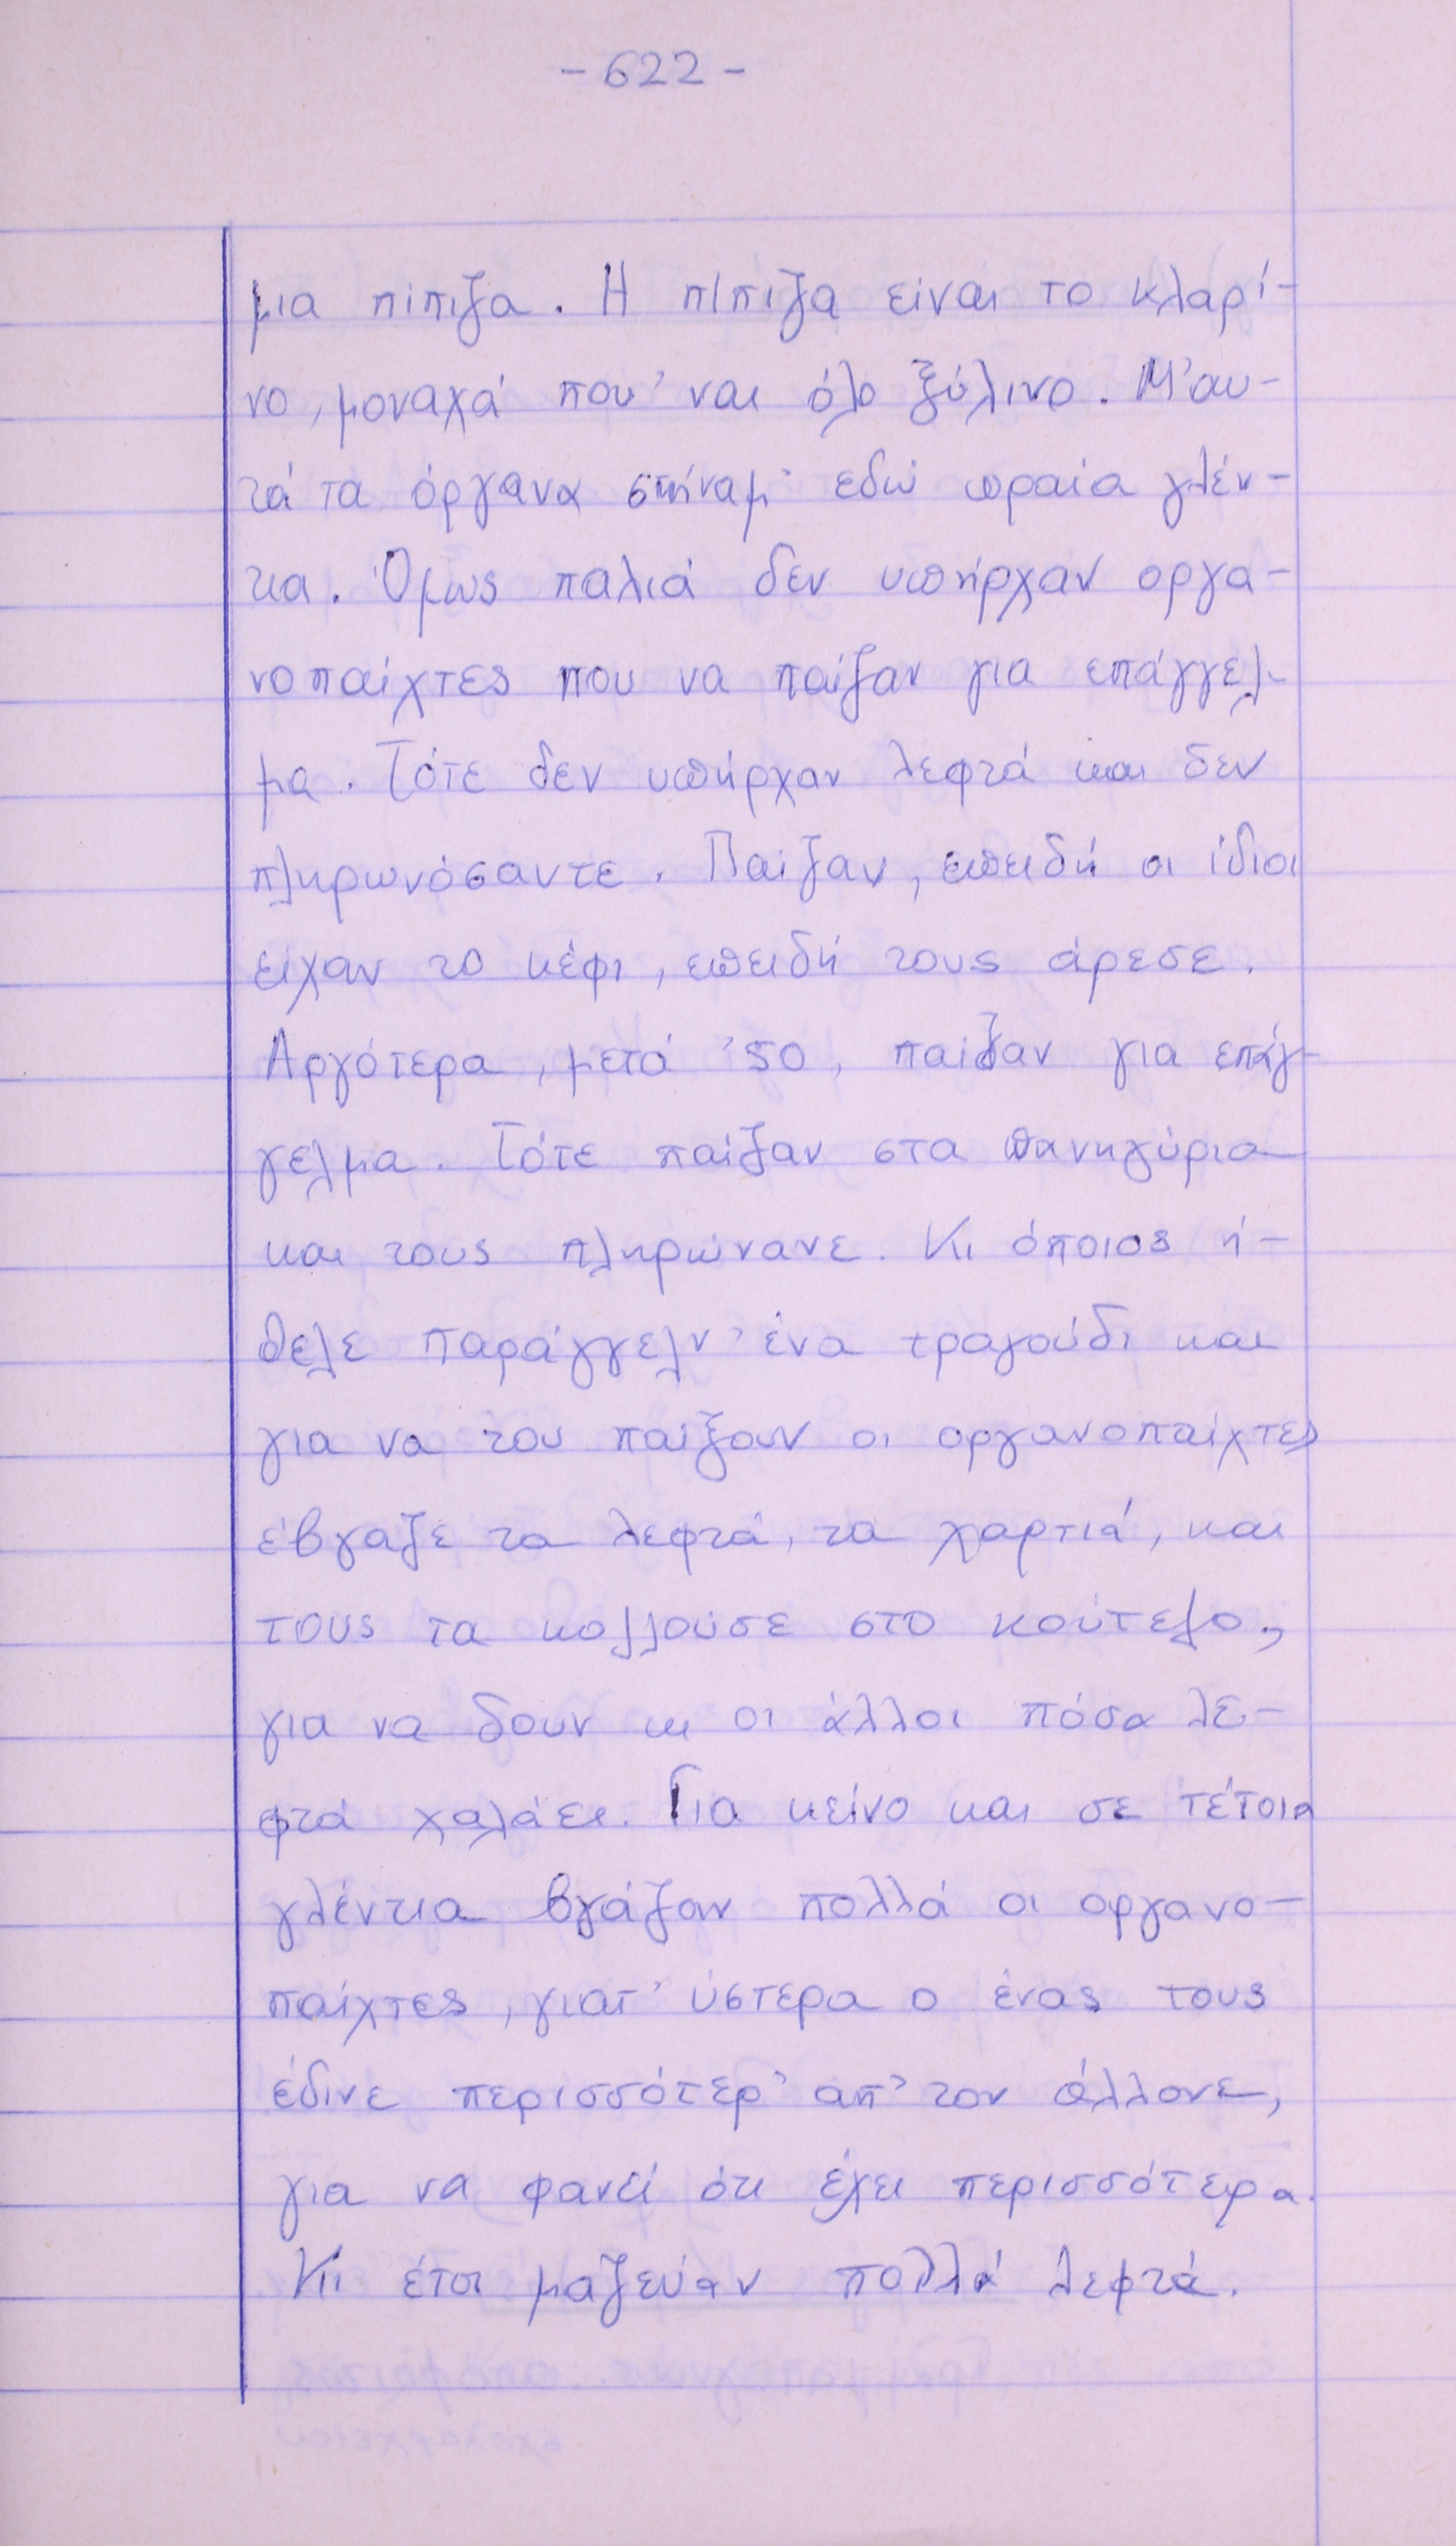 - 622 -
μια πίπιζα. Η πίπιζα είναι το κλαρί-
νο, μοναχά που' ναι όλο ξύλινο. Μ' αυ-
τά τα όργανα στήναμ' εδώ ωραία γλέν-
τια. Όμως παλιά δεν υπήρχαν οργα-
νοπαίχτες που να παίζαν για επάγγελ-
μα. Τότε δεν υπήρχαν λεφτά και δεν
πληρωνόσαντε. Παίζαν, επειδή οι ίδιοι
είχαν το κέφι, επειδή τους άρεσε.
Αργότερα, μετά '50, παίζαν για επάγ-
γελμα. Τότε παίζαν στα πανηγύρια
και τους πληρώνανε. Κι όποιος ή-
θελε παράγγελν' ένα τραγούδι και
για να του παίξουν οι οργανοπαίχτες
έβγαζε τα λεφτά, τα χαρτιά, και
τους τα κολλούσε στο κούτελο,
για να δουν κι οι άλλοι πόσα λε-
φτά χαλάει. Για κείνο και σε τέτοια
γλέντια βγάζαν πολλά οι οργανο-
παίχτες, γιατ' ύστερα ο ένας τους
έδινε περισσότερ' απ' τον άλλονε,
για να φανεί ότι έχει περισσότερα.
Κι έτσι μαζεύαν πολλά λεφτά.